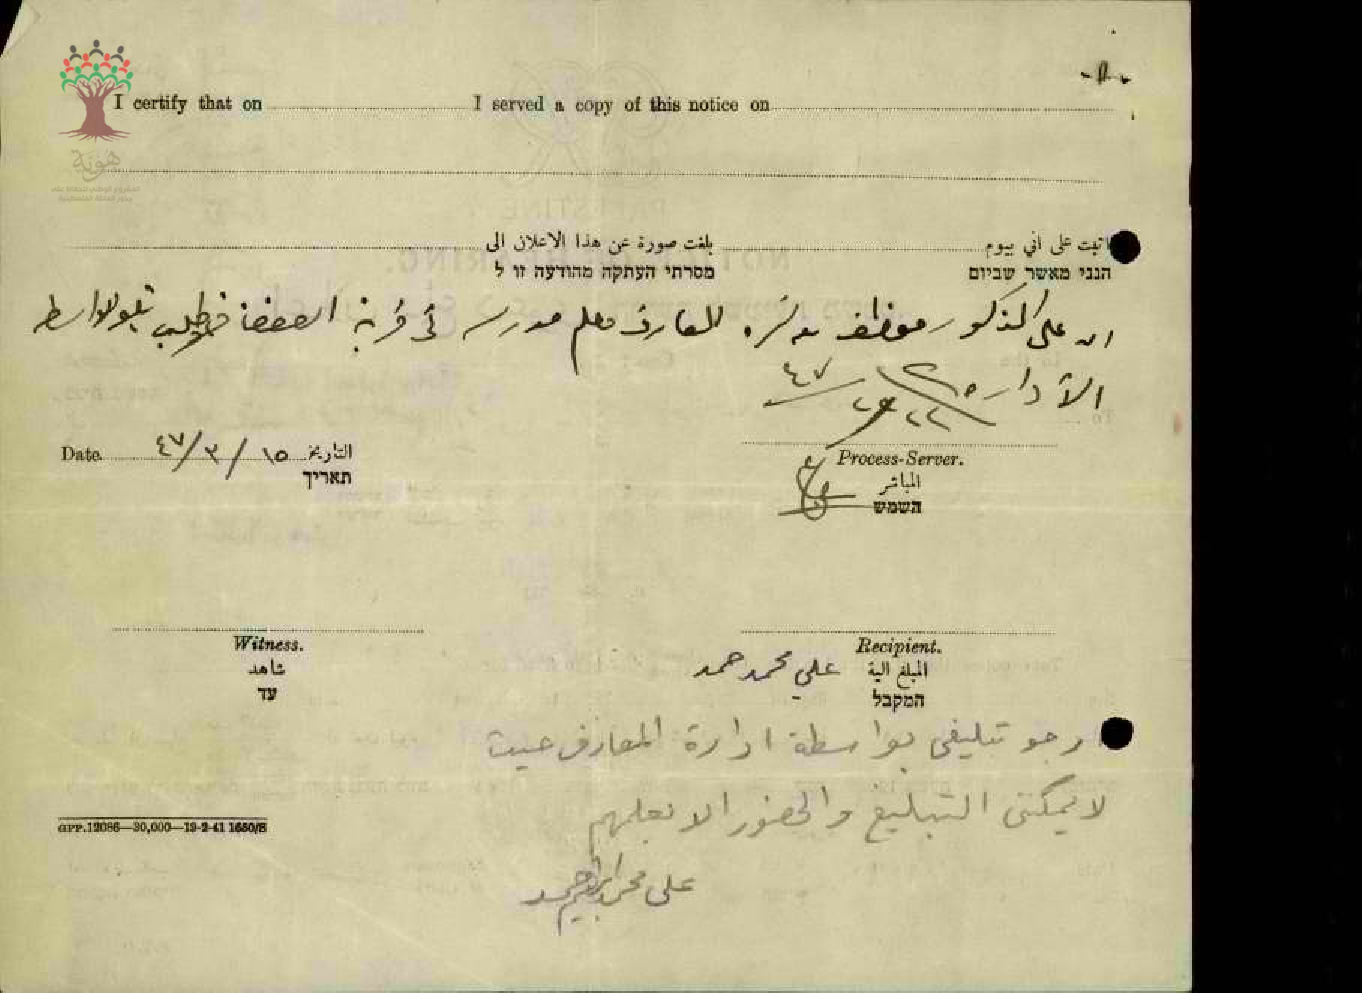 I certify that on ........ I served a copy of this notice on ........
هوية
اثبت على اني بيوم ........ بلغت صورة عن هذا الاعلان الى ........
הנני מאשר שביום מסרתי העתקה מהודעה זו ל
ان على المذكور موظف بدائره المعارف معلم مدرسه في قرية يطلب بواسطة
الادارة
Date ........ ١٥ / ٣ / ٤٧ ........ التاريخ
תאריך
Process-Server.
المباشر
השמש
Witness.
شاهد
עד
Recipient.
المبلغ اليه علي محمد حمد
המקבל
ارجو تبليغي بواسطة ادارة المعارف حيث
لا يمكنني التبليغ والحضور الا بعلمهم
علي محمد
GPP.12086—30,000—19-2-41 1650/S